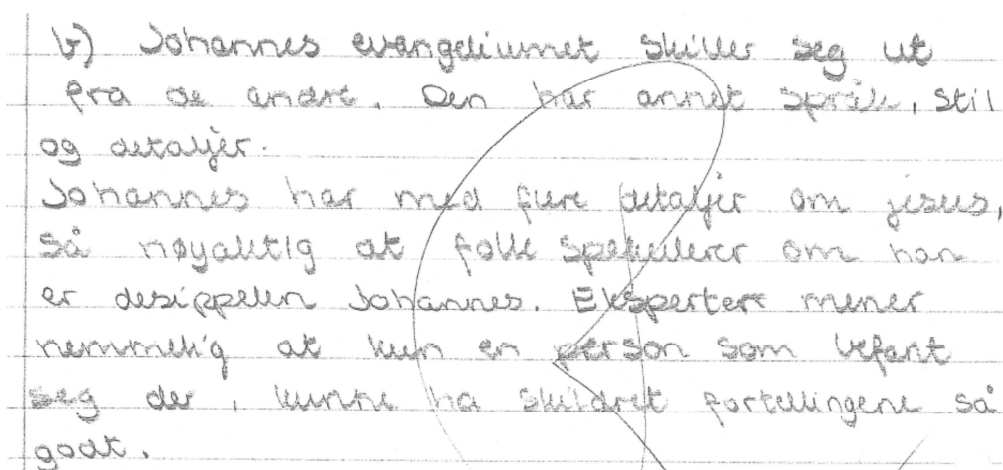 b) Johannes evangeliumet skiller seg ut
fra de andre. Den har annet språk, stil
og detaljer.
Johannes har med flere detaljer om jesus,
så nøyaktig at folk spekulerer om han
er desippelen Johannes. Eksperter mener
nemmelig at kun en person som befant
seg der, kunne ha skildret fortellingene så
godt.